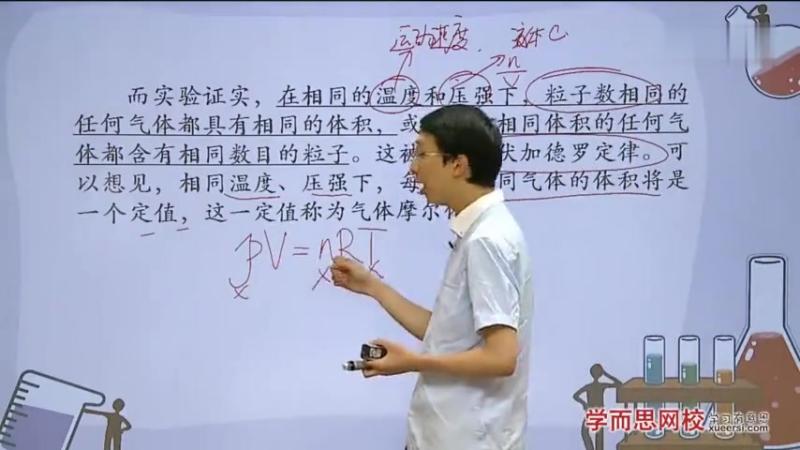 运动速度、 C
n
V
而实验证实，在相同的温度和压强下，粒子数相同的
任何气体都具有相同的体积，或 相同体积的任何气
体都含有相同数目的粒子。这被 伏加德罗定律。可
以想见，相同温度、压强下，每 同气体的体积将是
一个定值，这一定值称为气体摩尔
PV=nRT
学而思网校
xueersi.com